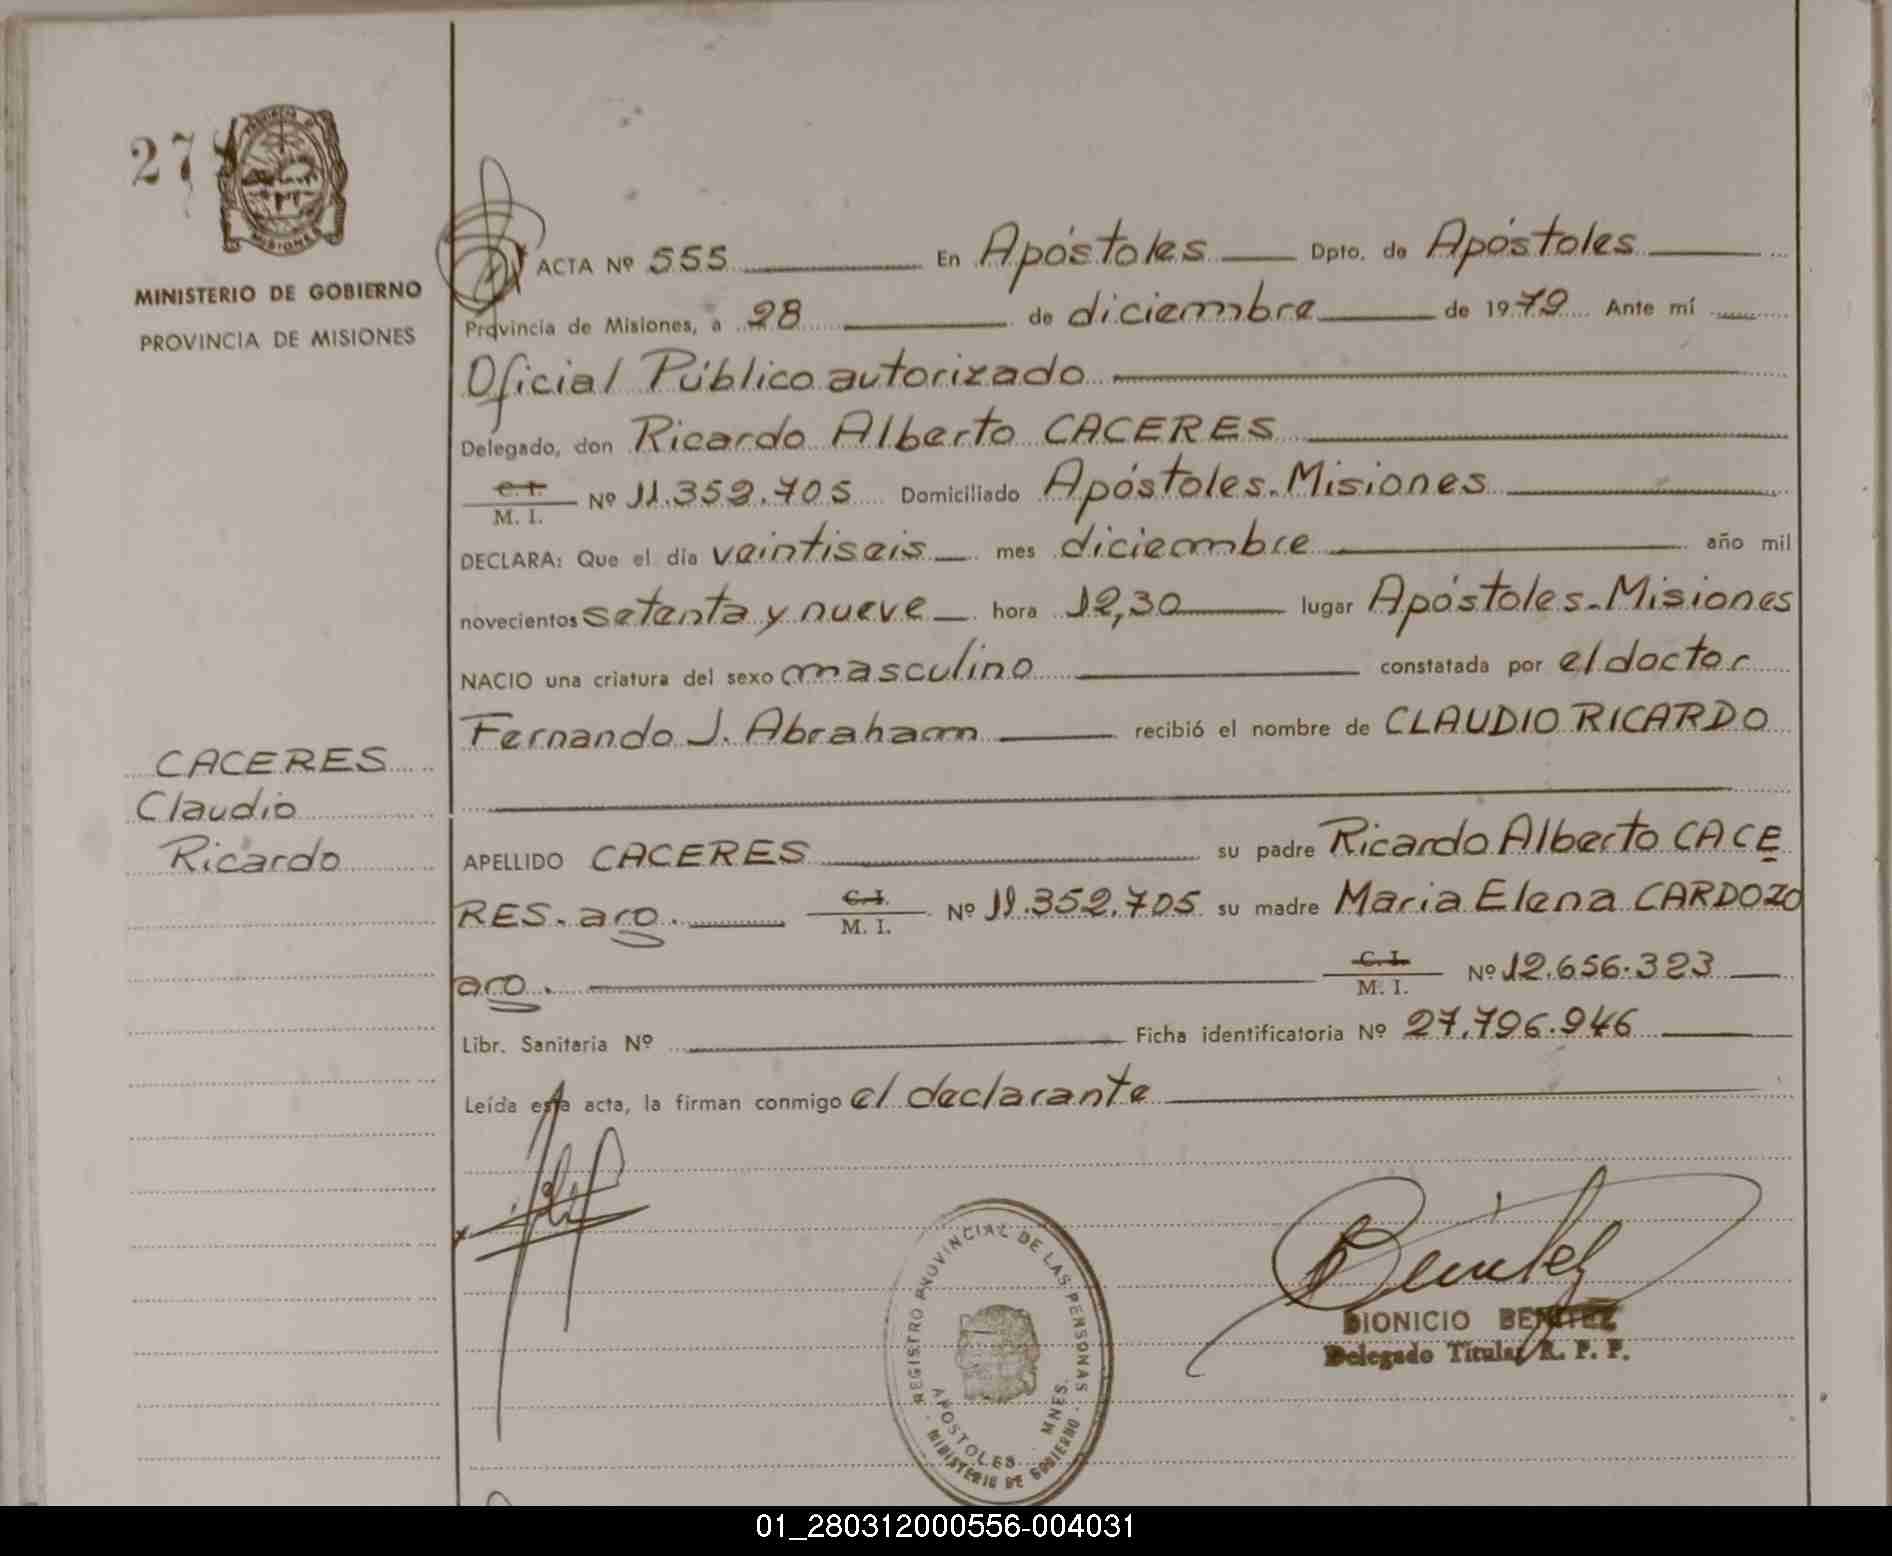 27
PROVINCIA DE
MISIONES
MINISTERIO DE GOBIERNO
PROVINCIA DE MISIONES
CACERES
Claudio
Ricardo
ACTA Nº 555 En Apóstoles Dpto. de Apóstoles
Provincia de Misiones, a 28 de diciembre de 1979 Ante mí
Oficial Público autorizado
Delegado, don Ricardo Alberto CACERES
C. I.
M. I. Nº 11.352.705 Domiciliado Apóstoles-Misiones
DECLARA: Que el día veintiseis mes diciembre año mil
novecientos setenta y nueve hora 12,30 lugar Apóstoles-Misiones
NACIO una criatura del sexo masculino constatada por el doctor
Fernando J. Abraham recibió el nombre de CLAUDIO RICARDO
APELLIDO CACERES su padre Ricardo Alberto CACE
RES. aro. C. I. M. I. Nº 11.352.705 su madre Maria Elena CARDOZO
aro. C. I. M. I. Nº 12.656.323
Libr. Sanitaria Nº Ficha identificatoria Nº 27.796.946
Leída esta acta, la firman conmigo el declarante
Benitez
DIONICIO BENITEZ
Delegado Titular R. P. P.
REGISTRO PROVINCIAL DE LAS PERSONAS
APOSTOLES MNES.
MINISTERIO DE GOBIERNO
01_280312000556-004031